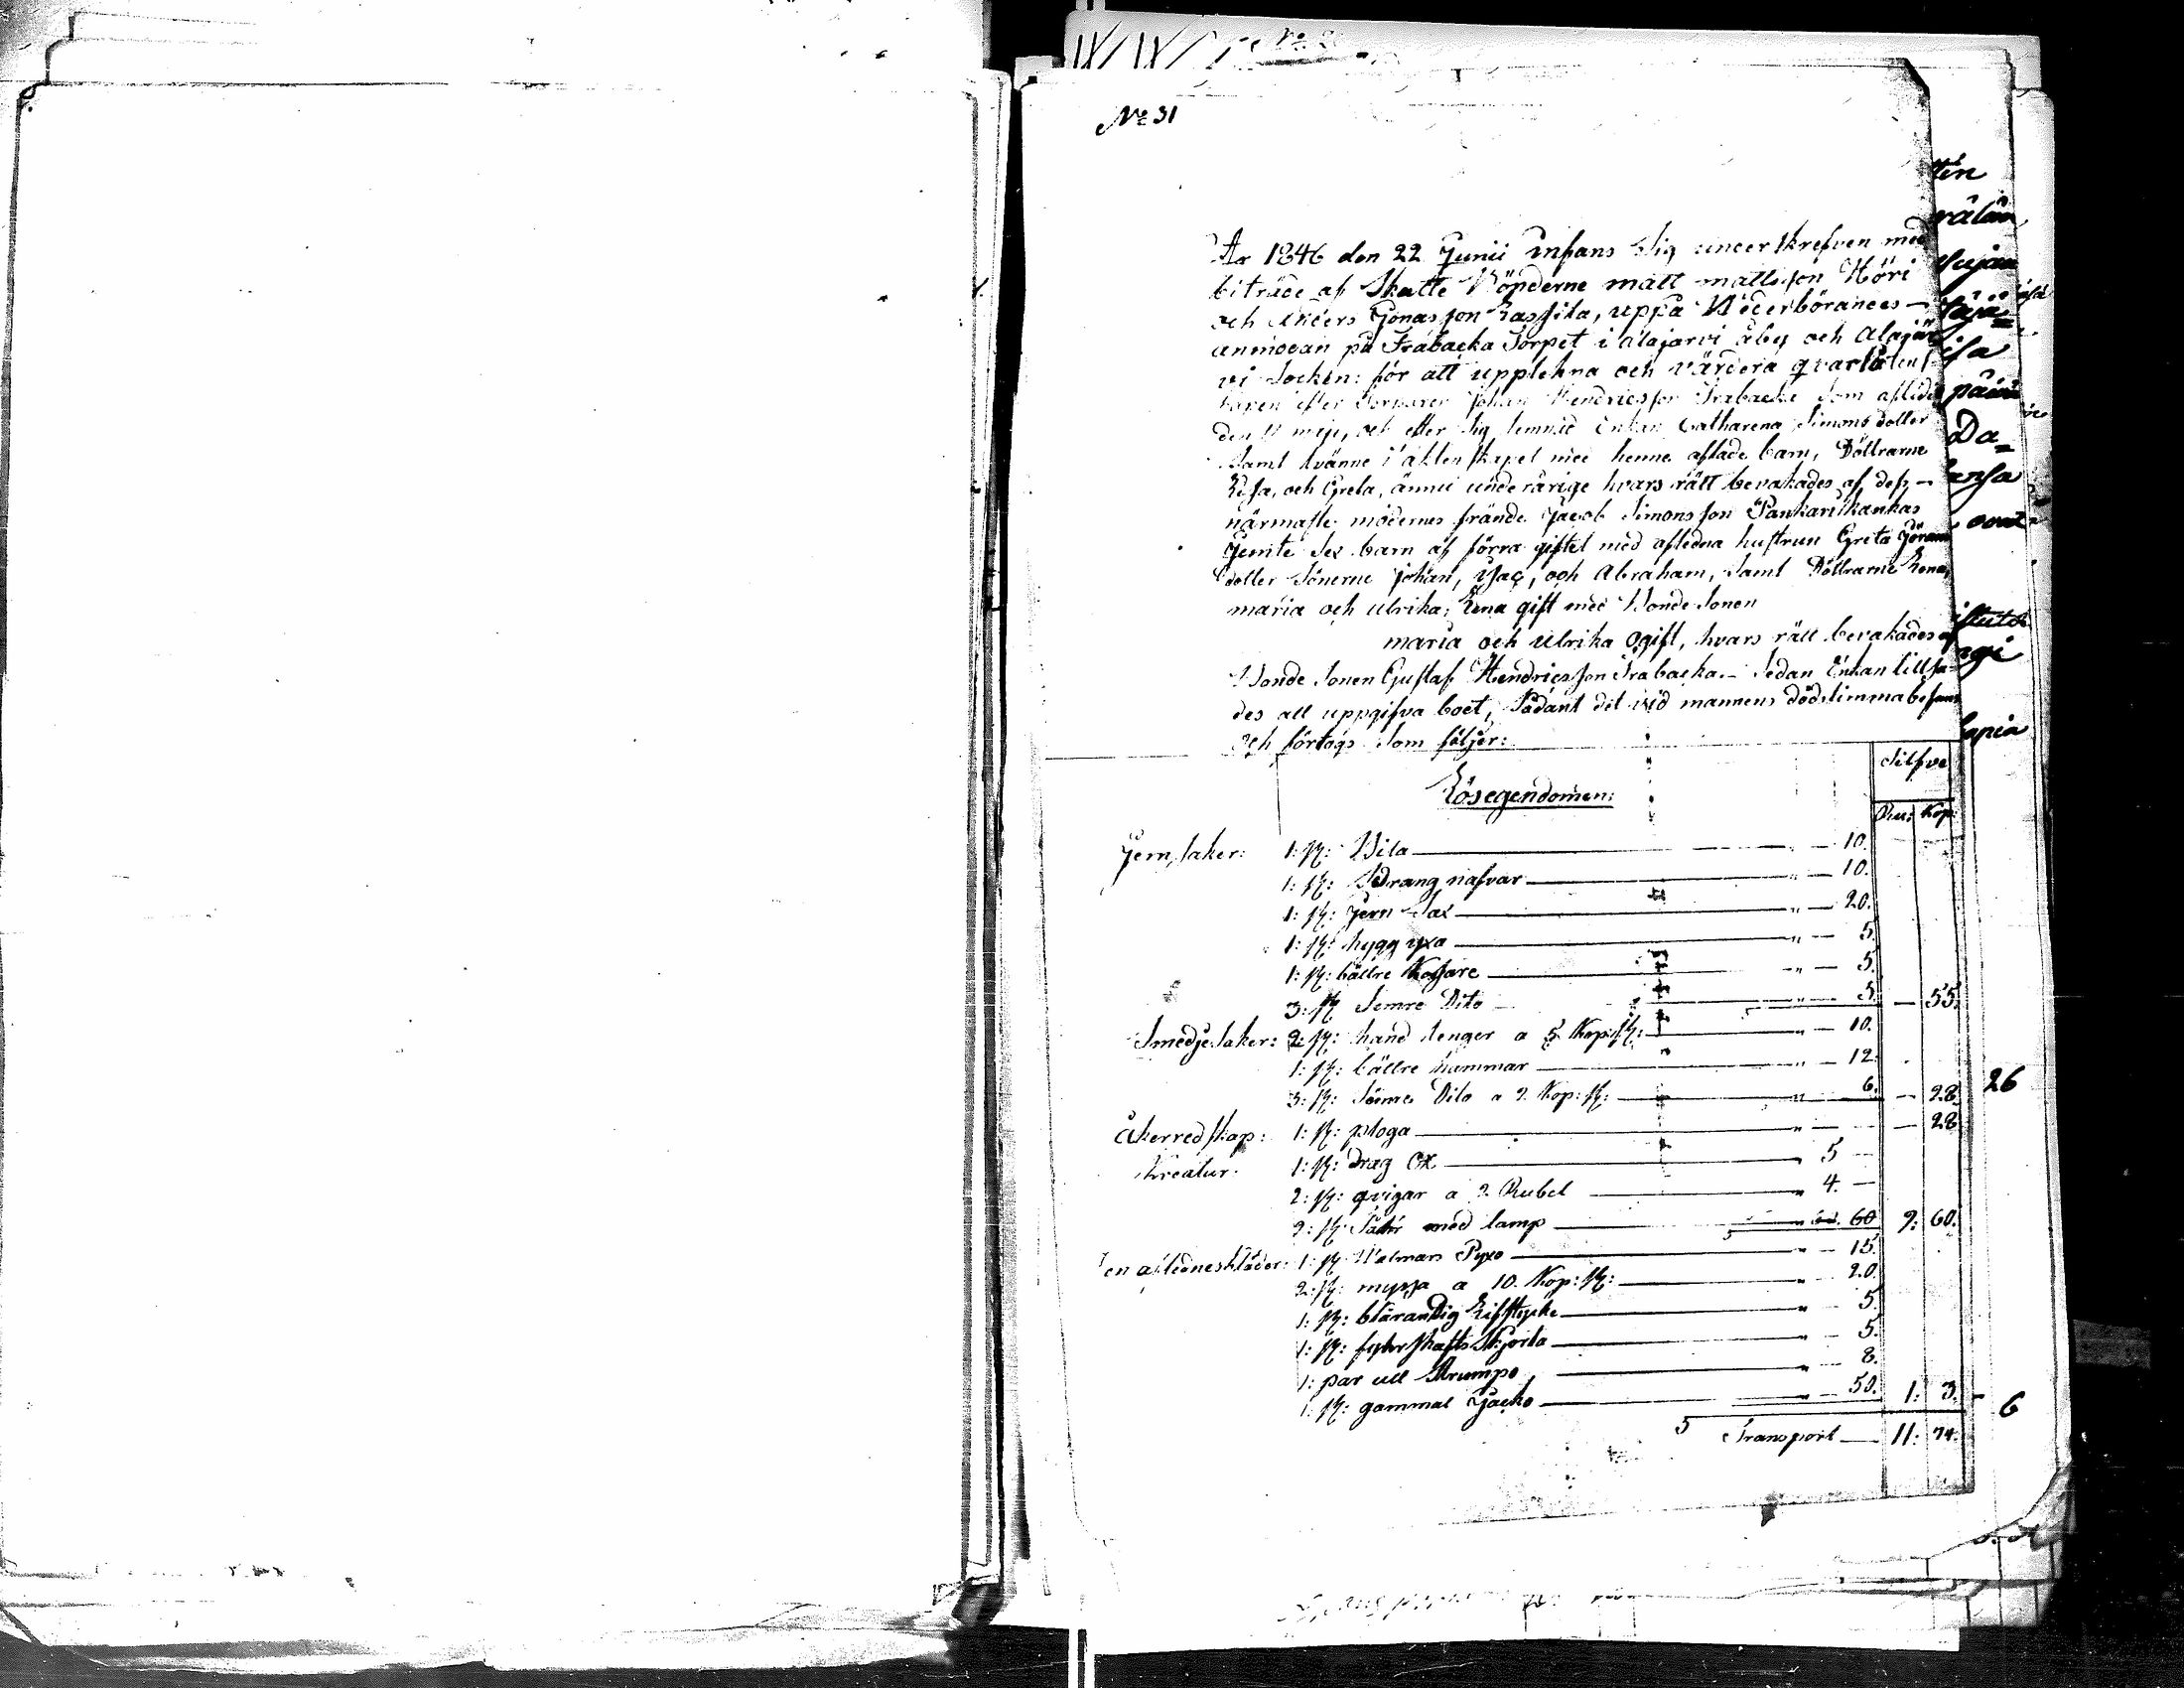 No 31
År 1846 den 22 Junii infans Sig underskrefven med
biträde af Skatte Böpderne matt mattsson Höri
och Anders Jonasson Kassila, uppå Vederbörandes
anmodan på Trabacka Torpet i alajarvi åby och Alajär
vi Socken: för att upptekna och värdera qvarlåtens
kapen efter Torparen Johan Hendricsson Trabacka Som afledit
den 11 maji, och efter Sig lemnad Enkan Catharena Simons dotter
Samt tvänne i äktenskapet med henne aflade barn, Döttrarne
Lisa, och Greta, ännu underårige hvars rätt bevakades af dess
närmaste mödernes frände Jacob Simonsson Pankarikankas
Jemte Sex barn af förra giftet med afledna hustrun Greta Görans
dotter Sönerne Johan, Isac, och Abraham, Samt Döttrarne Lena,
maria och Ulrika; Lena gift med Bonde Sonen
maria och Ulrika Ogift, hvars rätt bevakades af
Bonde Sonen Gustaf Hendricsson Trabacka. Sedan Enkan tillsa-
des att uppgifva boet, Sådant det vid mannens dödstimma befans
och förtogs Som följer:
Silfve
Lösegendomen:
Ru: Kop:
Jern Saker: 1: st: Bila 10.
1: st: Drang nafvar " 10.
1: st: Jern Sax " 20.
1: st: hygg yxa " 5.
1: st: bättre " 5.
3: st Semre Dito " 5. 55.
Smedje Saker: 2: st: hand tenger a 5 Kop: st: " 10.
1: st: bättre hammar " 12.
3: st: Sämre Dito a 2 Kop: st: " 6. 28.
Åkerredskap: 1: st: ploga " 28
Kreatur: 1: st: drag Ox 5
2: st: qvigar a 2 Rubel " 4.
2: st: med lamp " 60 9: 60.
Den aflednes kläder: 1: st Walmars " 15.
2: st: myssa a 10. Kop: st: " 20.
1: st: blårandig Lifstycke " 5.
1: st: fyhrskafts Skjorta " 5.
1: par ull Strumpo " 8.
1: st: gammal Jacko " 50. 1: 3.
Transport 11: 74.
26
6